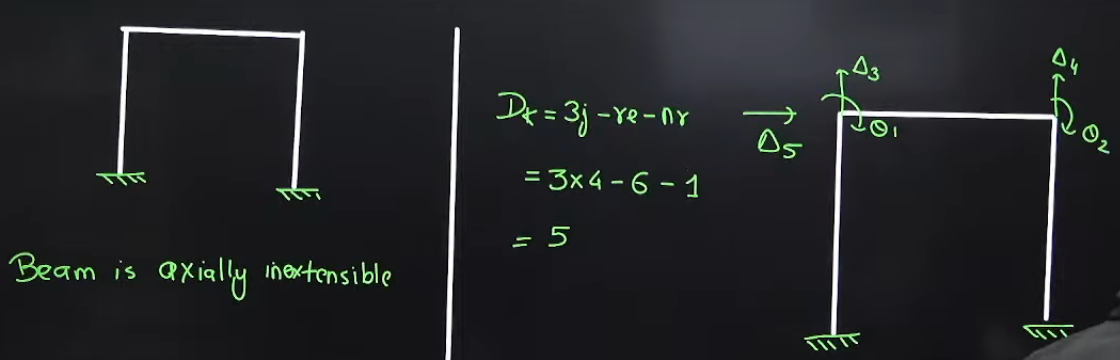 Beam is axially inextensible
Dk = 3j - re - nr
= 3x4 - 6 - 1
= 5
Δ3
Δ4
θ1
θ2
Δ5